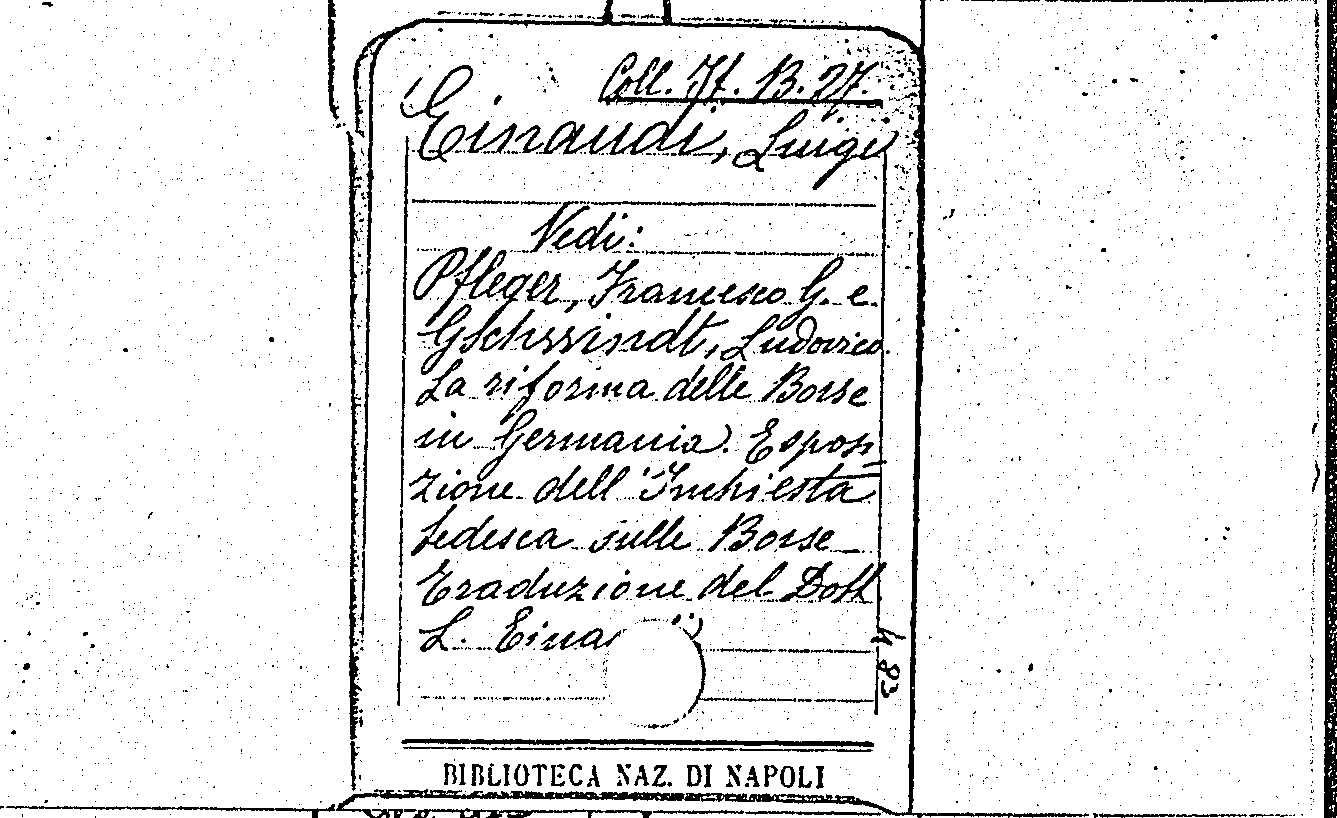 Coll. If. B. 27.
Einaudi, Luigi
Vedi:
Pfleger, Francesco G. e
Gschwindt, Ludovico.
La riforma delle Borse
in Germania. Esposi
zione dell'Inchiesta
tedesca sulle Borse
Traduzione del Dott
L.
483
BIBLIOTECA NAZ. DI NAPOLI